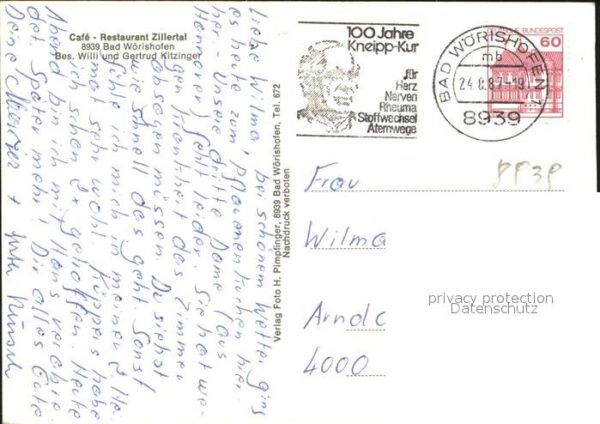 Café - Restaurant Zillertal
8939 Bad Wörishofen
Bes. Willi und Gertrud Kitzinger
100 Jahre
Kneipp-Kur
für
Herz
Nerven
Rheuma
Stoffwechsel
Atemwege
BAD WÖRISHOFEN 1
mb
24.8.87-19
8939
BUNDESPOST
60
Liebe Wilma, bei schönem Wetter ging
es heute zum Pflaumenkuchen hier-
her. Unsere dritte Dame (aus
Hannover) fehlt leider. Sie hat we-
gen Krankheit das Zimmer
lassen müssen. Du siehst
wie schnell das geht. Sonst
fühle ich mich in meiner
sehr wohl. habe
ich schon 2x getroffen. Heute
Abend bin ich mit Hans
det. Später mehr! Dir alles Gute
Deine +
Verlag Foto H. Pimpfinger, 8939 Bad Wörishofen, Tel. 672
Nachdruck verboten
8939
Frau
Wilma
Arndc
4000
privacy protection
Datenschutz